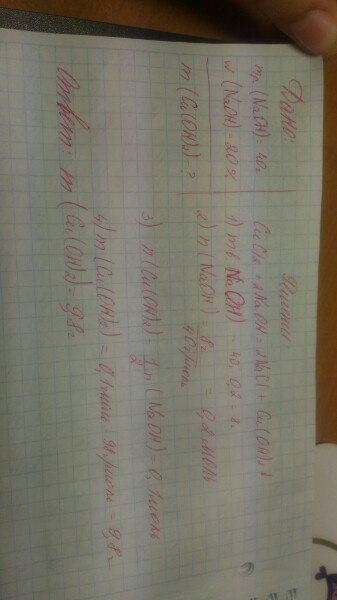 Дано:
mр (NaOH) = 40г
w (NaOH) = 20%
m (Cu(OH)2) - ?
Решение
CuCl2 + 2NaOH = 2NaCl + Cu(OH)2↓
1) mв (NaOH) = 40 · 0,2 = 8г
2) n (NaOH) = 8г / 40г/моль = 0,2 моль
3) n (Cu(OH)2) = 1/2 n (NaOH) = 0,1моль
4) m (Cu(OH)2) = 0,1моль · 98г/моль = 9,8г
Ответ: m (Cu(OH)2) = 9,8г